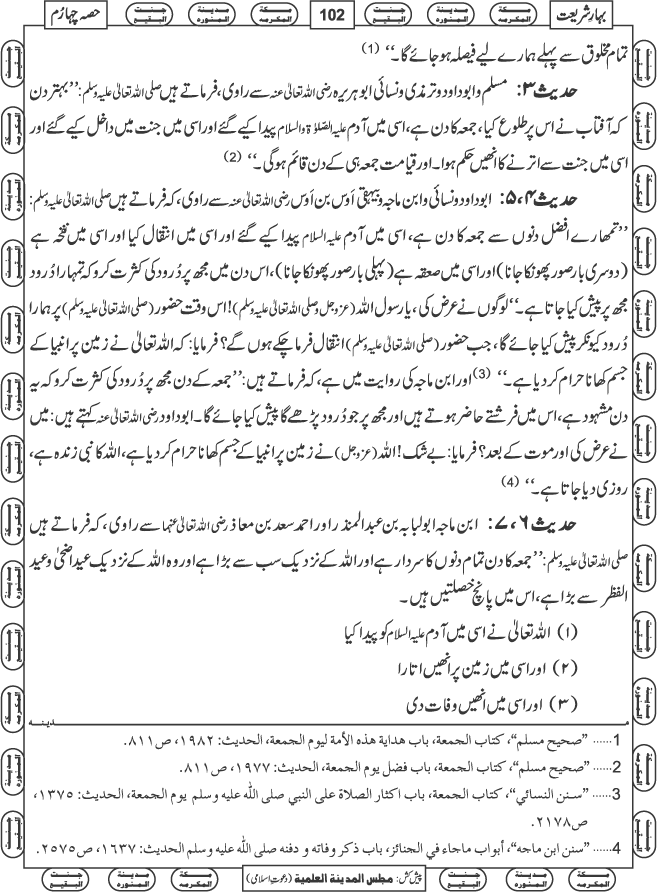 بہارِ شریعت
102
حصہ چہارم
تمام مخلوق سے پہلے ہمارے لیے فیصلہ ہو جائے گا۔‘‘ (1)
حدیث ۳: مسلم و ابو داود و ترمذی و نسائی ابو ہریرہ رضی اللہ تعالیٰ عنہ سے راوی، فرماتے ہیں صلی اللہ تعالیٰ علیہ وسلم: ’’بہتر دن
کہ آفتاب نے اس پر طلوع کیا، جمعہ کا دن ہے، اسی میں آدم علیہ الصلوٰۃ والسلام پیدا کیے گئے اور اسی میں جنت میں داخل کیے گئے اور
اسی میں جنت سے اترنے کا انھیں حکم ہوا۔ اور قیامت جمعہ ہی کے دن قائم ہوگی۔‘‘ (2)
حدیث ۴، ۵: ابو داود و نسائی و ابن ماجہ و بیہقی اَوس بن اَوس رضی اللہ تعالیٰ عنہ سے راوی، کہ فرماتے ہیں صلی اللہ تعالیٰ علیہ وسلم:
’’تمھارے افضل دنوں سے جمعہ کا دن ہے، اسی میں آدم علیہ السلام پیدا کیے گئے اور اسی میں انتقال کیا اور اسی میں نفخہ ہے
(دوسری بار صور پھونکا جانا) اور اسی میں صعقہ ہے (پہلی بار صور پھونکا جانا)، اس دن میں مجھ پر دُرود کی کثرت کرو کہ تمہارا دُرود
مجھ پر پیش کیا جاتا ہے۔‘‘ لوگوں نے عرض کی، یا رسول اللہ (عزوجل و صلی اللہ تعالیٰ علیہ وسلم)! اس وقت حضور (صلی اللہ تعالیٰ علیہ وسلم) پر ہمارا
دُرود کیونکر پیش کیا جائے گا، جب حضور (صلی اللہ تعالیٰ علیہ وسلم) انتقال فرما چکے ہوں گے؟ فرمایا: کہ اللہ تعالیٰ نے زمین پر انبیا کے
جسم کھانا حرام کر دیا ہے۔‘‘ (3) اور ابن ماجہ کی روایت میں ہے، کہ فرماتے ہیں: ’’جمعہ کے دن مجھ پر دُرود کی کثرت کرو کہ یہ
دن مشہود ہے، اس میں فرشتے حاضر ہوتے ہیں اور مجھ پر جو دُرود پڑھے گا پیش کیا جائے گا۔ ابو داود رضی اللہ تعالیٰ عنہ کہتے ہیں: میں
نے عرض کی اور موت کے بعد؟ فرمایا: بے شک! اللہ (عزوجل) نے زمین پر انبیا کے جسم کھانا حرام کر دیا ہے، اللہ کا نبی زندہ ہے،
روزی دیا جاتا ہے۔‘‘ (4)
حدیث ۶، ۷: ابن ماجہ ابولبابہ بن عبدالمنذر اور احمد سعد بن معاذ رضی اللہ تعالیٰ عنہما سے راوی، کہ فرماتے ہیں
صلی اللہ تعالیٰ علیہ وسلم: ’’جمعہ کا دن تمام دنوں کا سردار ہے اور اللہ کے نزدیک سب سے بڑا ہے اور وہ اللہ کے نزدیک عید اضحیٰ و عید
الفطر سے بڑا ہے، اس میں پانچ خصلتیں ہیں۔
(۱) اللہ تعالیٰ نے اسی میں آدم علیہ السلام کو پیدا کیا
(۲) اور اسی میں زمین پر انھیں اتارا
(۳) اور اسی میں انھیں وفات دی
مدینہ
1...... ”صحیح مسلم“، کتاب الجمعة، باب هداية هذه الأمة ليوم الجمعة، الحديث: ۱۹۸۲، ص۸۱۱.
2...... ”صحیح مسلم“، کتاب الجمعة، باب فضل يوم الجمعة، الحديث: ۱۹۷۷، ص۸۱۱.
3...... ”سنن النسائي“، کتاب الجمعة، باب اکثار الصلاة علی النبي صلی الله علیه وسلم یوم الجمعة، الحديث: ۱۳۷۵،
ص۲۱۷۸.
4...... ”سنن ابن ماجه“، أبواب ماجاء في الجنائز، باب ذکر وفاته و دفنه صلی الله علیه وسلم الحدیث: ۱۶۳۷، ص۲۵۷۵.
پیش کش: مجلس المدينة العلمية (دعوتِ اسلامی)